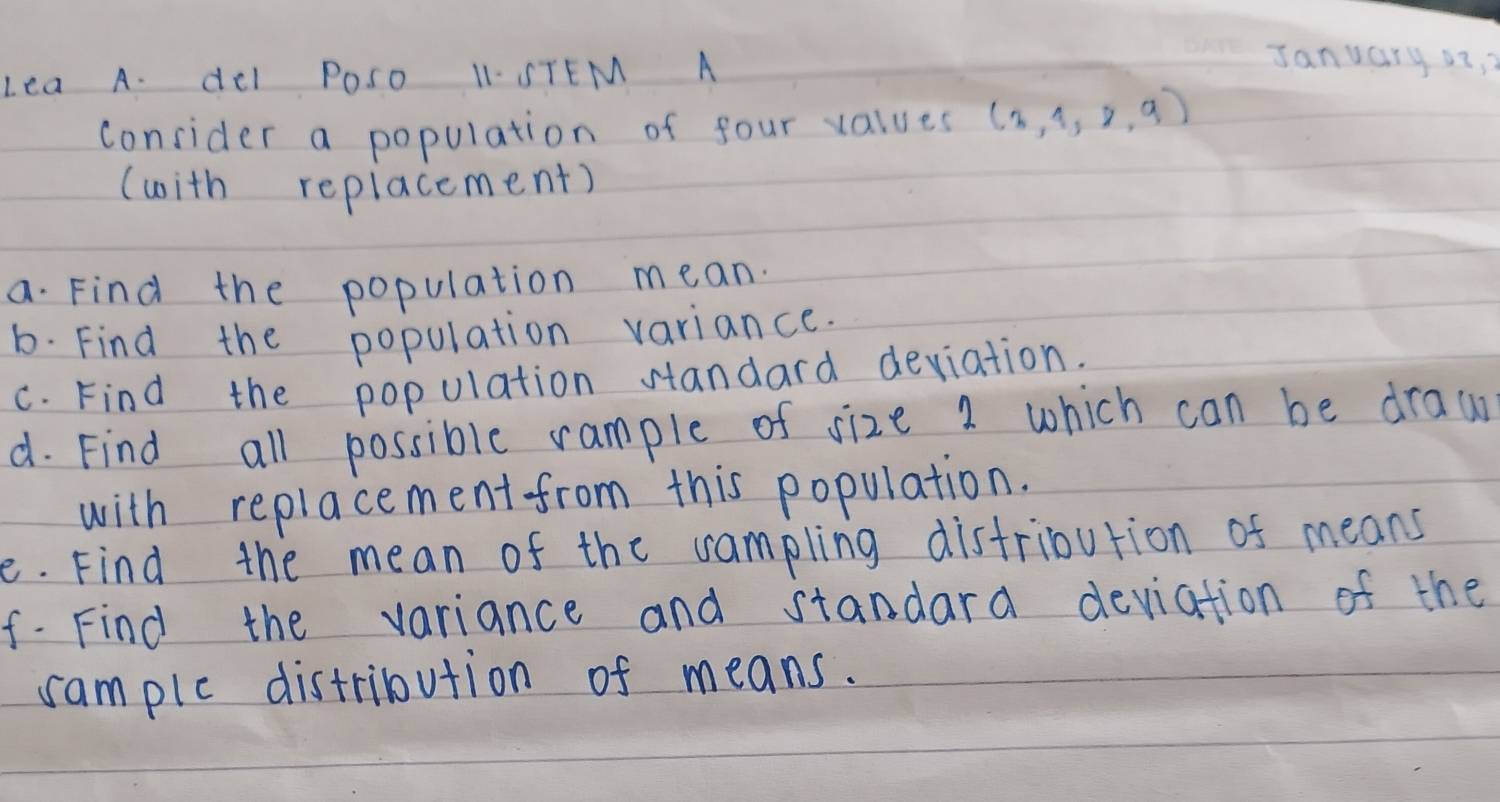 Lea A. del Poso 11-STEM A
January
Consider a population of four values
(with replacement)
a. Find the population mean.
b. Find the population variance.
c. Find the population standard deviation.
d. Find all possible sample of size 2 which can be draw
with replacement from this population.
e. Find the mean of the sampling distribution of means
f. Find the variance and standard deviation of the
sample distribution of means.